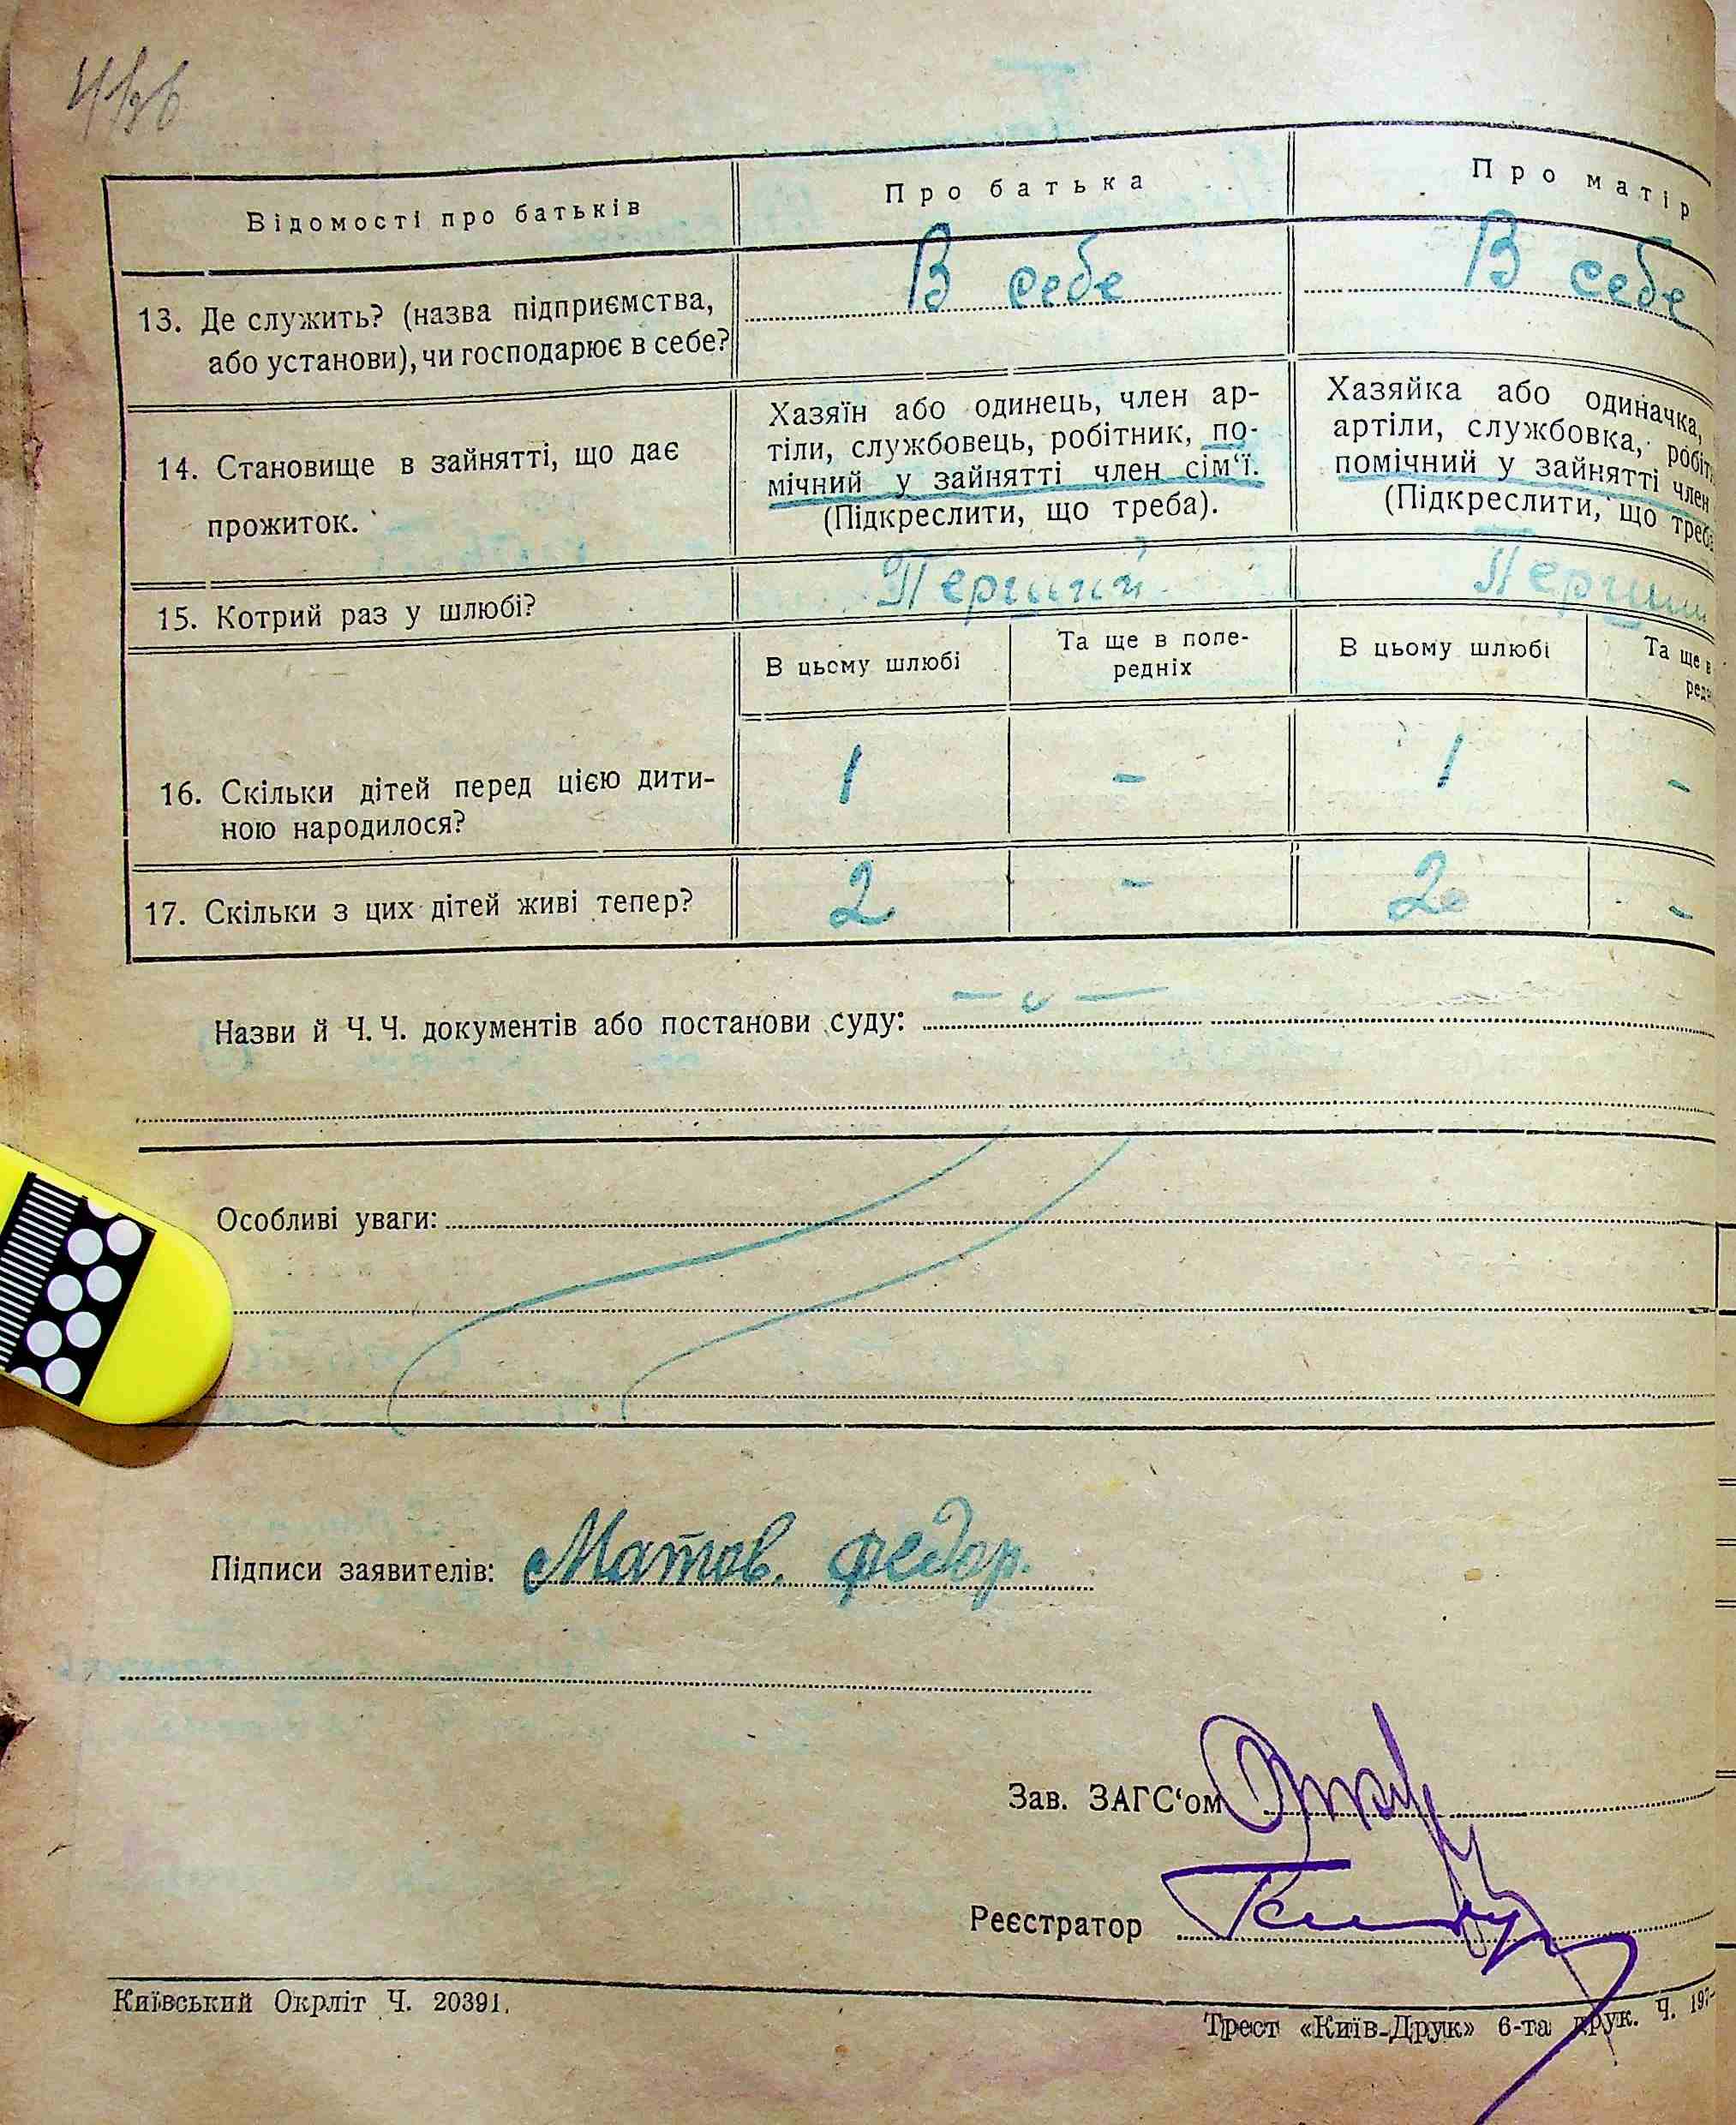 Відомості про батьків
Про батька
Про матір
13. Де служить? (назва підприємства,
або установи), чи господарює в себе?
В себе
В себе
14. Становище в зайнятті, що дає
прожиток.
Хазяїн або одинець, член ар-
тіли, службовець, робітник, по-
мічний у зайнятті член сім‘ї.
(Підкреслити, що треба).
Хазяйка або одиначка,
артіли, службовка, робіт
помічний у зайнятті член
(Підкреслити, що треба
15. Котрий раз у шлюбі?
Перший
Перший
В цьому шлюбі
Та ще в попе-
редніх
В цьому шлюбі
Та ще в
ред
16. Скільки дітей перед цією дити-
ною народилося?
1
-
1
-
17. Скільки з цих дітей живі тепер?
2
-
2
-
Назви й Ч. Ч. документів або постанови суду:
Особливі уваги:
Підписи заявителів: Матов. Федор.
Зав. ЗАГС‘ом
Реєстратор
Київський Окрліт Ч. 20391.
Трест «Київ-Друк» 6-та друк. Ч. 197-